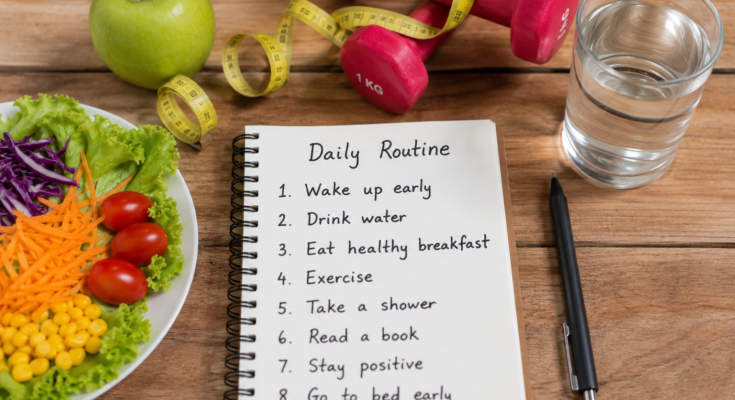 1 KG
Daily Routine
1. Wake up early
2. Drink water
3. Eat healthy breakfast
4. Exercise
5. Take a shower
6. Read a book
7. Stay positive
8. Go to bed early